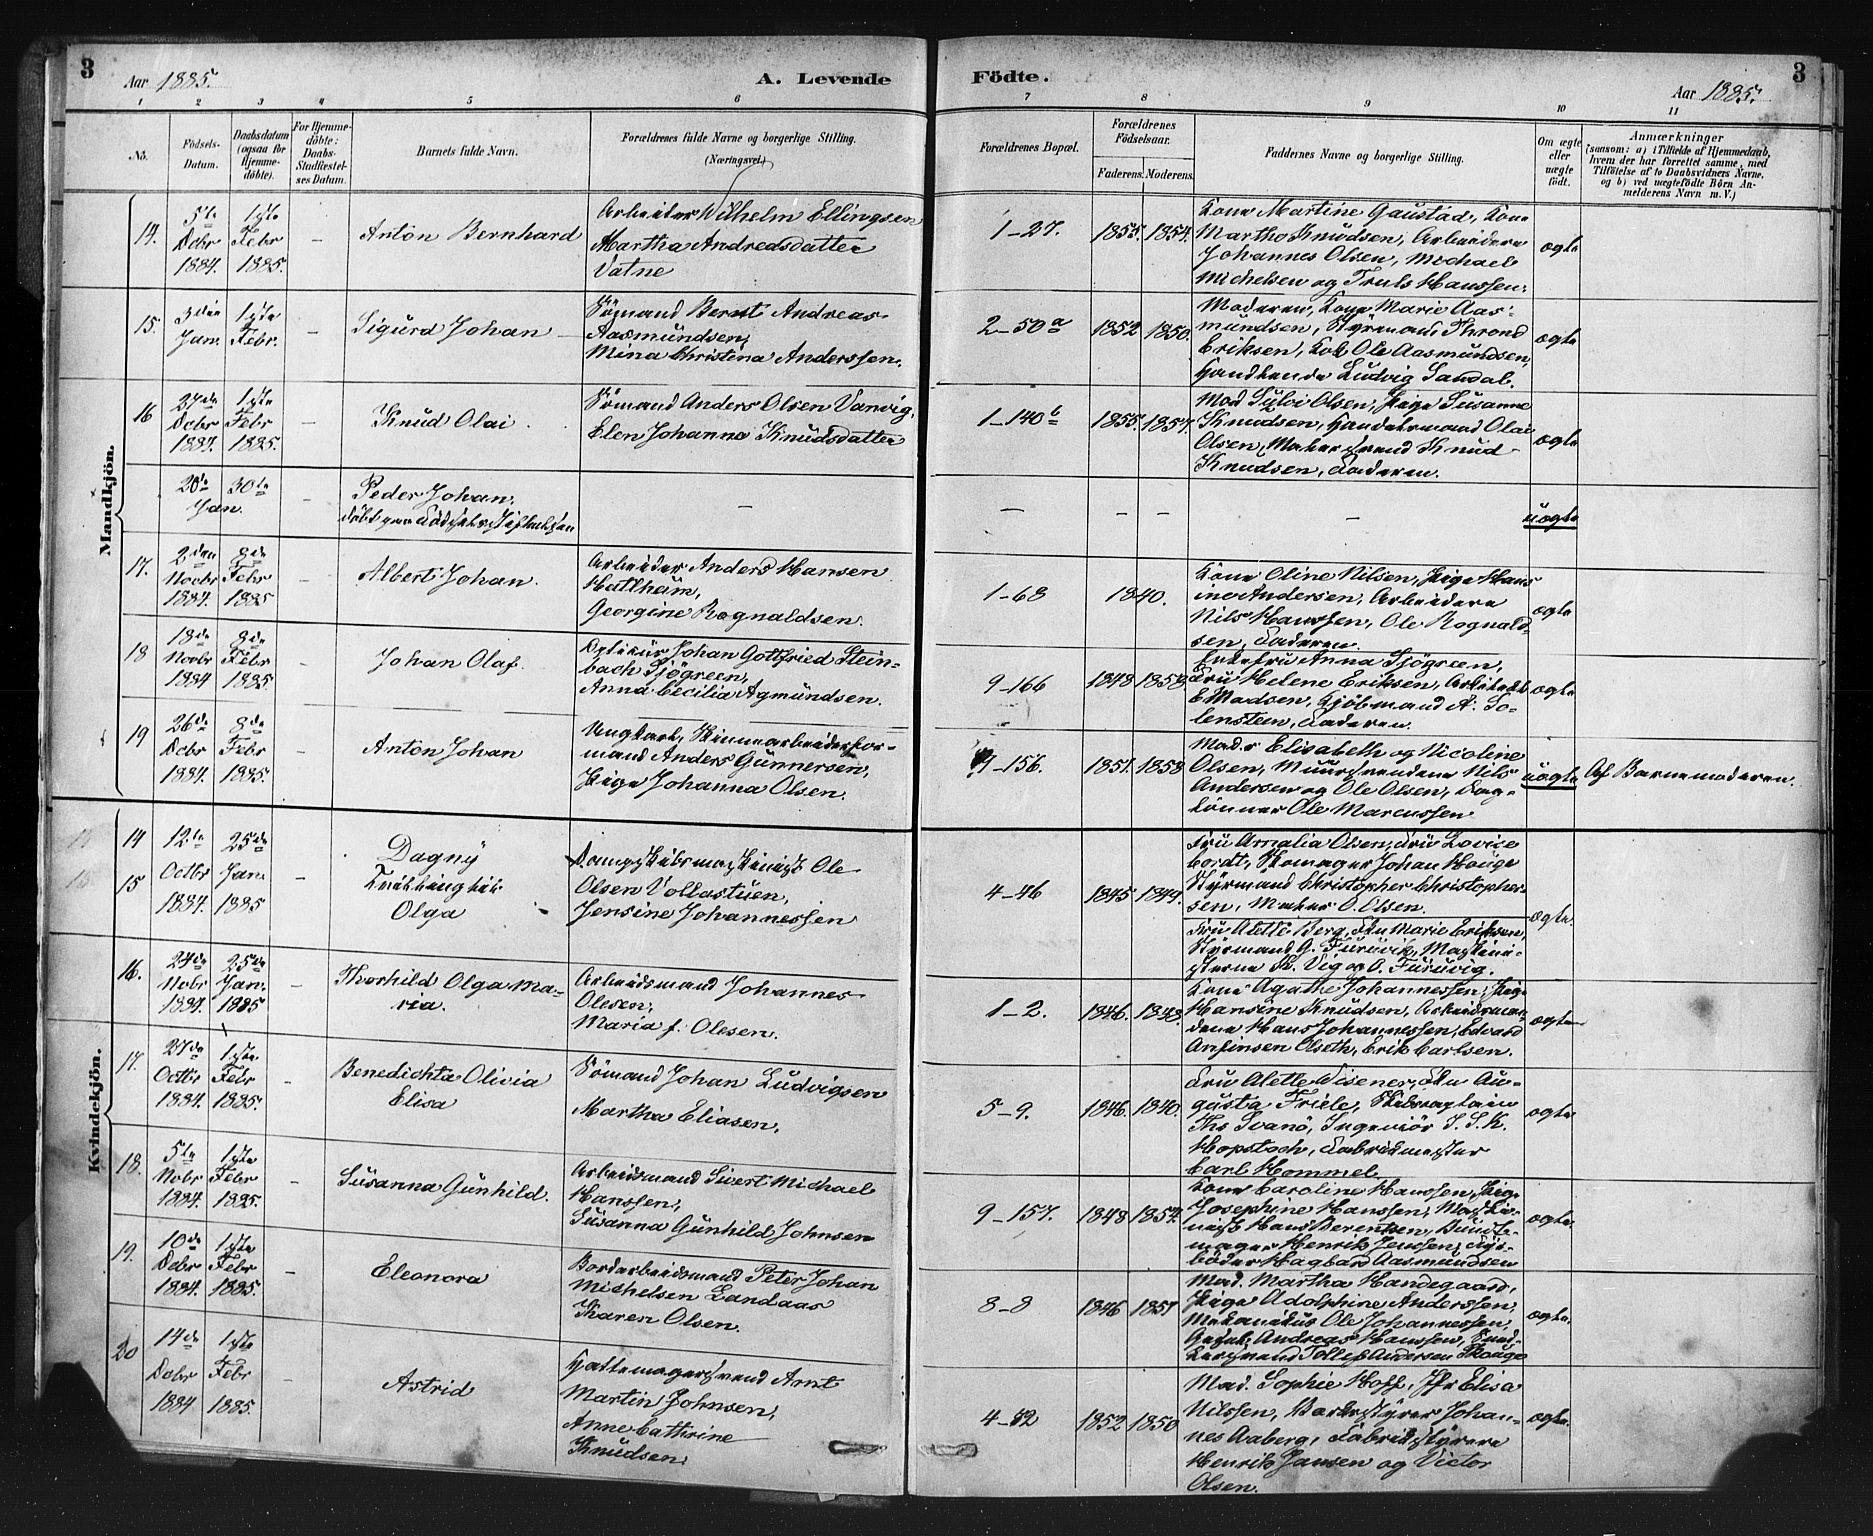 3
Aar 1885.
A. Levende
Födte.
3
Aar 1885.
1
2
3
4
5
6
7
8
9
10
11
No.
Födsels-
Datum.
Daabsdatum
(ogsaa for
Hjemme-
döbte).
For Hjemme-
döbte:
Daabs-
Stadfæstel-
ses Datum.
Barnets fulde Navn.
Forældrenes fulde Navne og borgerlige Stilling.
(Næringsvei.)
Forældrenes Bopæl.
Forældrenes
Födselsaar.
Faderens. Moderens.
Faddernes Navne og borgerlige Stilling.
Om ægte
eller
uægte
födt.
Anmærkninger
(saasom: a) i Tilfælde af Hjemmedaab,
hvem der har forrettet samme, med
Tilföielse af to Daabsvidners Navne,
og b) ved uægtefödte Börn An-
melderens Navn m. V.)
Mandkjön.
14.
5te
Debr
1884.
1ste
Febr
1885.
Anton Bernhard
Arbeider Wilhelm Ellingsen
Martha Andreasdatter
Vatne
1-27.
1855. 1854.
Kone Martine Gaustad, Kone
Martha Knudsen, Arbeidere
Johannes Olsen, Michael
Michelsen og Truls Hanssen.
ægte
15.
3die
Jan.
1ste
Febr.
Sigurd Johan
Sömand Bernt Andreas
Aasmundsen,
Mina Christina Anderssen.
2-50a
1852 1850.
Moderen, Kone Marie Aas-
mundsen, Styrmand Thrond
Eriksen, Kok Ole Aasmundsen,
Handlende Ludvig Sandal.
ægte
16
27de
Debr
1884.
1ste
Febr
1885.
Knud Olai
Sömand Anders Olsen Vanvig,
Elen Johanna Knudsdatter
1-140b
1855. 1857.
Mad Sylvi Olsen, Pige Susanne
Knudsen, Handelsmand Olai
Olsen, Malersvend Knud
Knudsen, Faderen.
ægte
20de
Jan.
30te
Peder Johan,
döbt paa Födselsstiftelsen
uægte
17.
2den
Novbr
1884.
8de
Febr
1885
Albert Johan.
Arbeider Anders Hansen
Hatlheim,
Georgine Rognaldsen.
1-68
1840.
Kone Oline Nilsen, Pige Hans
ine Andersen, Arbeidere
Nils Hanssen, Ole Rognald-
sen, Faderen.
ægte
18
18de
Novbr
1884
8de
Febr
1885
Johan Olaf.
Optikür Johan Gottfried Stein-
bach Sjögreen,
Anna Cecilia Agmundsen.
9-166
1848 1858
Enkefru Anna Sjögreen,
Fru Helene Eriksen, Arkitekt
E Madsen, Kjöbmand A. Lo-
lenstein, Faderen.
ægte
19
26de
Debr
1884.
8de
Febr
1885.
Anton Johan
Ungkarl, Skinnearbeiderfor-
mand Anders Gunnersen,
Pige Johanna Olsen.
9-156.
1851. 1858
Mad.r Elisabeth og Nicoline
Olsen, Muursvendene Nils
Andersen og Ole Olsen, Dag-
lönner Ole Marcussen
uægte
Af Barnemoderen.
Kvindekjön.
14
15
12te
Octbr
1884.
25de
Jan.
1885
Dagny
Tvillingfødt
Olga
Dampskibsmaskinist Ole
Olsen Vollastuen,
Jensine Johannessen
4-46
1845 1849.
Fru Amalia Olsen, Fru Lovise
Cordt, Skomager Johan Hauge
Styrmand Christopher Christopher-
sen, Maler O. Olsen.
Fru Alette Berg, Fru Marie Eriksen,
Styrmand G. Furuvik, Maskini-
sterne K. Vig og O. Furuvig.
ægte.
16.
24de
Nobr
1884.
25de
Jan.
1885
Thorhild Olga Ma-
ria.
Arbeidsmand Johannes
Olesen,
Maria f. Olesen.
1-2.
1846. 1848.
Kone Agathe Johannessen, Pige
Hansine Knudsen, Arbeidsmæn-
dene Hans Johannessen, Edvard
Anfinsen Olseth, Erik Carlsen.
ægte
17.
27de
Octbr
1884.
1ste
Febr
1885.
Benedichta Olivia
Elisa
Sömand Johan Ludvigsen
Martha Eliasen.
5-9.
1846. 1840.
Fru Alette Wisener, Fru Au-
gusta Friele, Skibscaptain
Ths Svanö, Ingeniör J. S. K.
Hopstock, Fabrikmester
Carl Hommel.
ægte.
18.
5te
Nobr
1884.
1ste
Febr
1885.
Susanna Gunhild.
Arbeidsmand Sivert Michael
Hanssen,
Susanna Gunhild Johnsen
9-157.
1848 1857.
Kone Caroline Hanssen, Pige
Josephine Hanssen, Maski-
nist Hans Berentsen, Bundt-
mager Henrik Jenssen, Fyr-
böder Hagbard Aasmundsen
ægte.
19.
10de
Debr
1884.
1ste
Febr
1885.
Eleonora
Bordarbeidsmand Peter Johan
Michelsen Landaas
Karen Olsen.
8-8
1846 1851
Mad. Martha Handegaard,
Pige Adolphine Anderssen,
Mekanikus Ole Johannessen,
Gesel. Andreas Hanssen, Sned-
kersvend Tollef Andersen Skauge
ægte.
20
14de
Debr
1884
1ste
Febr
1885.
Astrid
Hattemagersvend Arnt
Martin Johnsen,
Anne Cathrine
Knudsen.
4-52
1852 1850
Mad. Sophie Hoff, Jfr Elisa
Nilssen, Bordestyrer Johan-
nes Aaberg, Fabrikstyrere
Henrik Jansen og Victor
Olsen.
ægte.